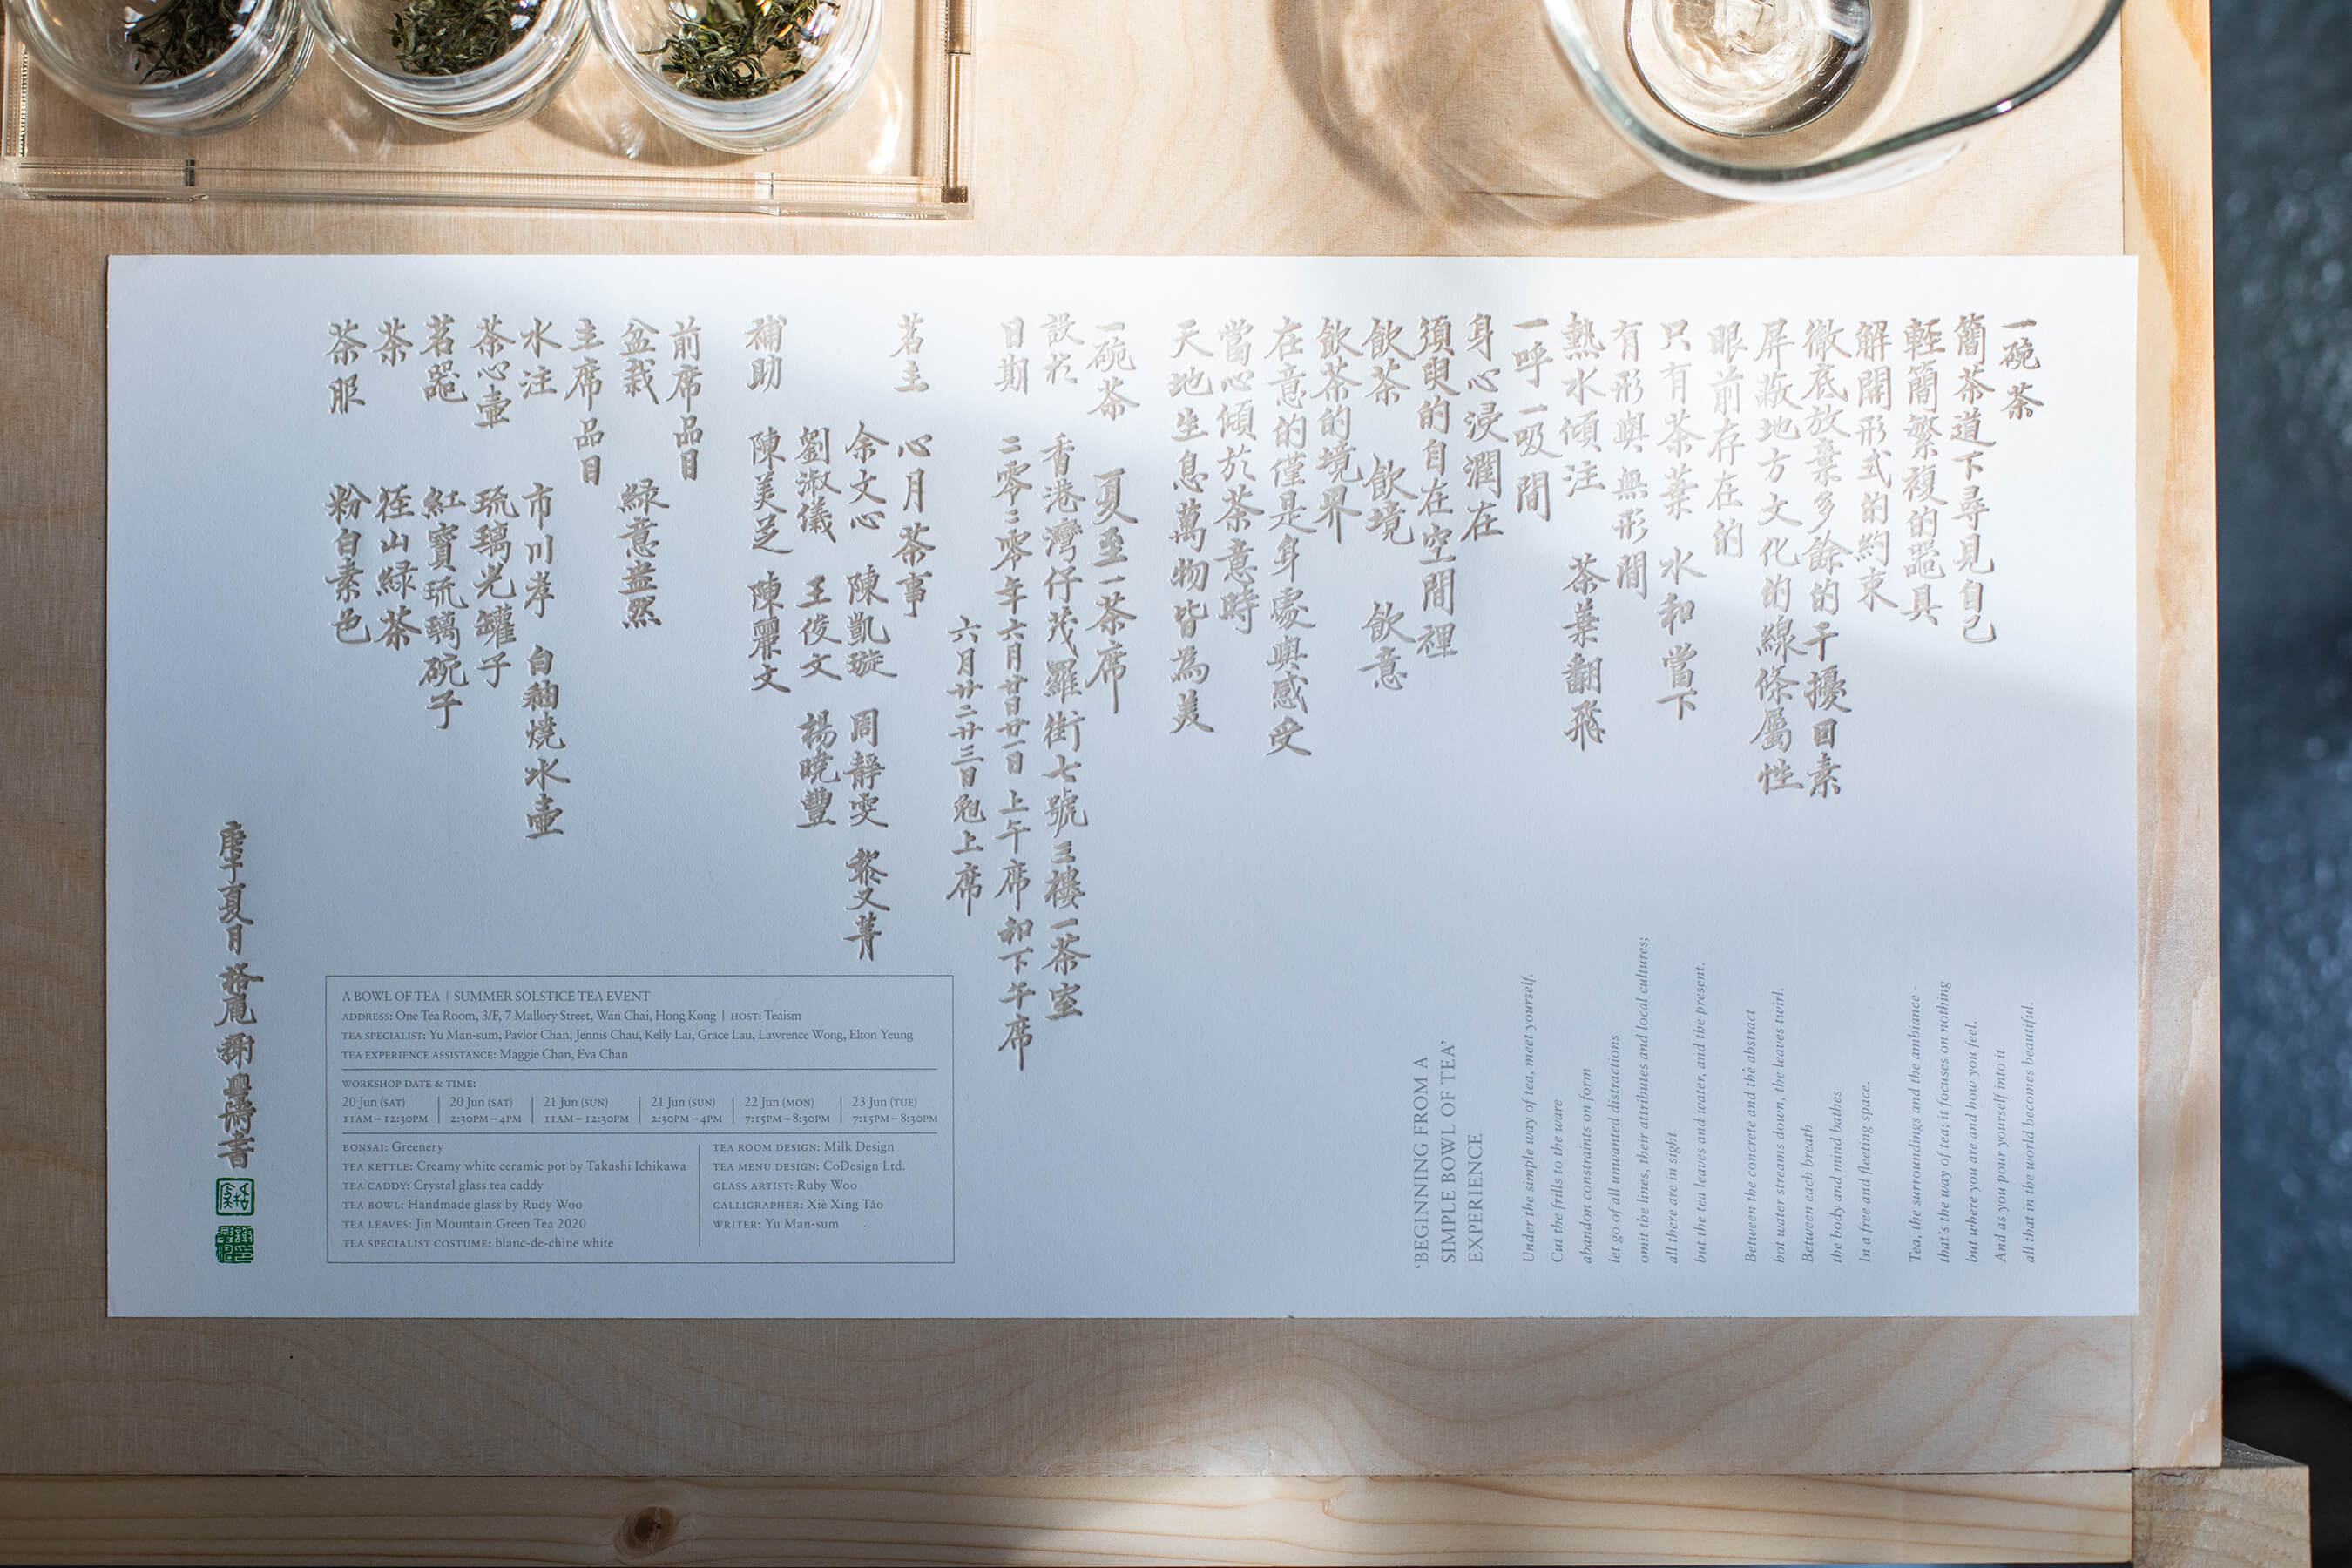 一碗茶
簡茶道下尋見自己
輕簡繁複的器具
解開形式的約束
徹底放棄多餘的干擾回素
屏蔽地方文化的線條屬性
眼前存在的
只有茶葉 水和當下
有形與無形間
熱水傾注 茶葉翻飛
一呼一吸間
身心浸潤在
須臾的自在空間裡
飲茶 飲境 飲意
飲茶的境界
在意的僅是身處與感受
當心傾於茶意時
天地生息萬物皆為美
一碗茶 夏至一茶席
設於 香港灣仔茂羅街七號三樓一茶室
日期 二零二零年六月廿日廿一日 上午席和下午席
六月廿二廿三日 晚上席
茗主 心月茶事
余文心 陳凱璇 周靜雯 黎又菁
劉淑儀 王俊文 楊曉豐
補助 陳美芝 陳霈文
前席品目
盆栽 綠意盎然
主席品目
水注 市川孝 白釉燒水壺
茶心壺 琉璃光罐子
茗器 紅寶琉璃碗子
茶 徑山綠茶
茶服 粉白素色
庚子夏月 格庵 謝興濤書
A BOWL OF TEA | SUMMER SOLSTICE TEA EVENT
ADDRESS: One Tea Room, 3/F, 7 Mallory Street, Wan Chai, Hong Kong | HOST: Teaism
TEA SPECIALIST: Yu Man-sum, Pavlor Chan, Jennis Chau, Kelly Lai, Grace Lau, Lawrence Wong, Elton Yeung
TEA EXPERIENCE ASSISTANCE: Maggie Chan, Eva Chan
WORKSHOP DATE & TIME:
20 Jun (SAT) | 20 Jun (SAT) | 21 Jun (SUN) | 21 Jun (SUN) | 22 Jun (MON) | 23 Jun (TUE)
11AM – 12:30PM | 2:30PM – 4PM | 11AM – 12:30PM | 2:30PM – 4PM | 7:15PM – 8:30PM | 7:15PM – 8:30PM
BONSAI: Greenery
TEA KETTLE: Creamy white ceramic pot by Takashi Ichikawa
TEA CADDY: Crystal glass tea caddy
TEA BOWL: Handmade glass by Rudy Woo
TEA LEAVES: Jin Mountain Green Tea 2020
TEA SPECIALIST COSTUME: blanc-de-chine white
TEA ROOM DESIGN: Milk Design
TEA MENU DESIGN: CoDesign Ltd.
GLASS ARTIST: Ruby Woo
CALLIGRAPHER: Xiè Xìng Táo
WRITER: Yu Man-sum
'BEGINNING FROM A
SIMPLE BOWL OF TEA'
EXPERIENCE
Under the simple way of tea, meet yourself.
Cut the frills to the ware
abandon constraints on form
let go of all unwanted distractions
omit the lines, their attributes and local cultures;
all there are in sight
but the tea leaves and water, and the present.
Between the concrete and the abstract
hot water streams down, the leaves twirl.
Between each breath
the body and mind bathes
In a free and fleeting space.
Tea, the surroundings and the ambiance -
that's the way of tea; it focuses on nothing
but where you are and how you feel.
And as you pour yourself into it
all that in the world becomes beautiful.